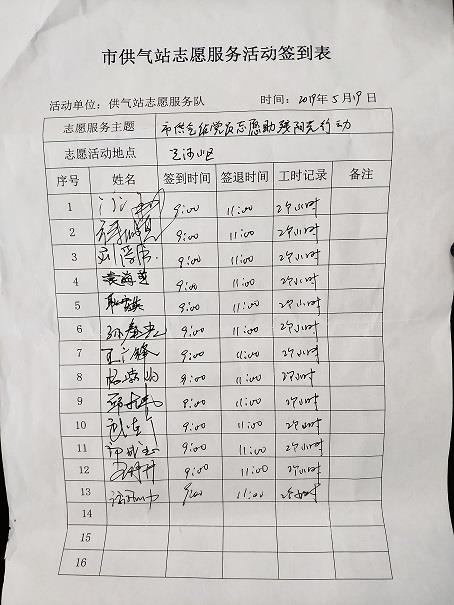 市供气站志愿服务活动签到表
活动单位：供气站志愿服务队 时间：2019年5月19日
志愿服务主题 市供气站党员志愿助残阳光行动
志愿活动地点 小区
序号 姓名 签到时间 签退时间 工时记录 备注
1 9:00 11:00 2个小时
2 9:00 11:00 2个小时
3 9:00 11:00 2个小时
4 袁海芝 9:00 11:00 2个小时
5 9:00 11:00 2个小时
6 9:00 11:00 2个小时
7 王广锋 9:00 11:00 2个小时
8 9:00 11:00 2个小时
9 9:00 11:00 2个小时
10 9:00 11:00 2个小时
11 9:00 11:00 2个小时
12 9:00 11:00 2个小时
13 9:00 11:00 2个小时
14
15
16